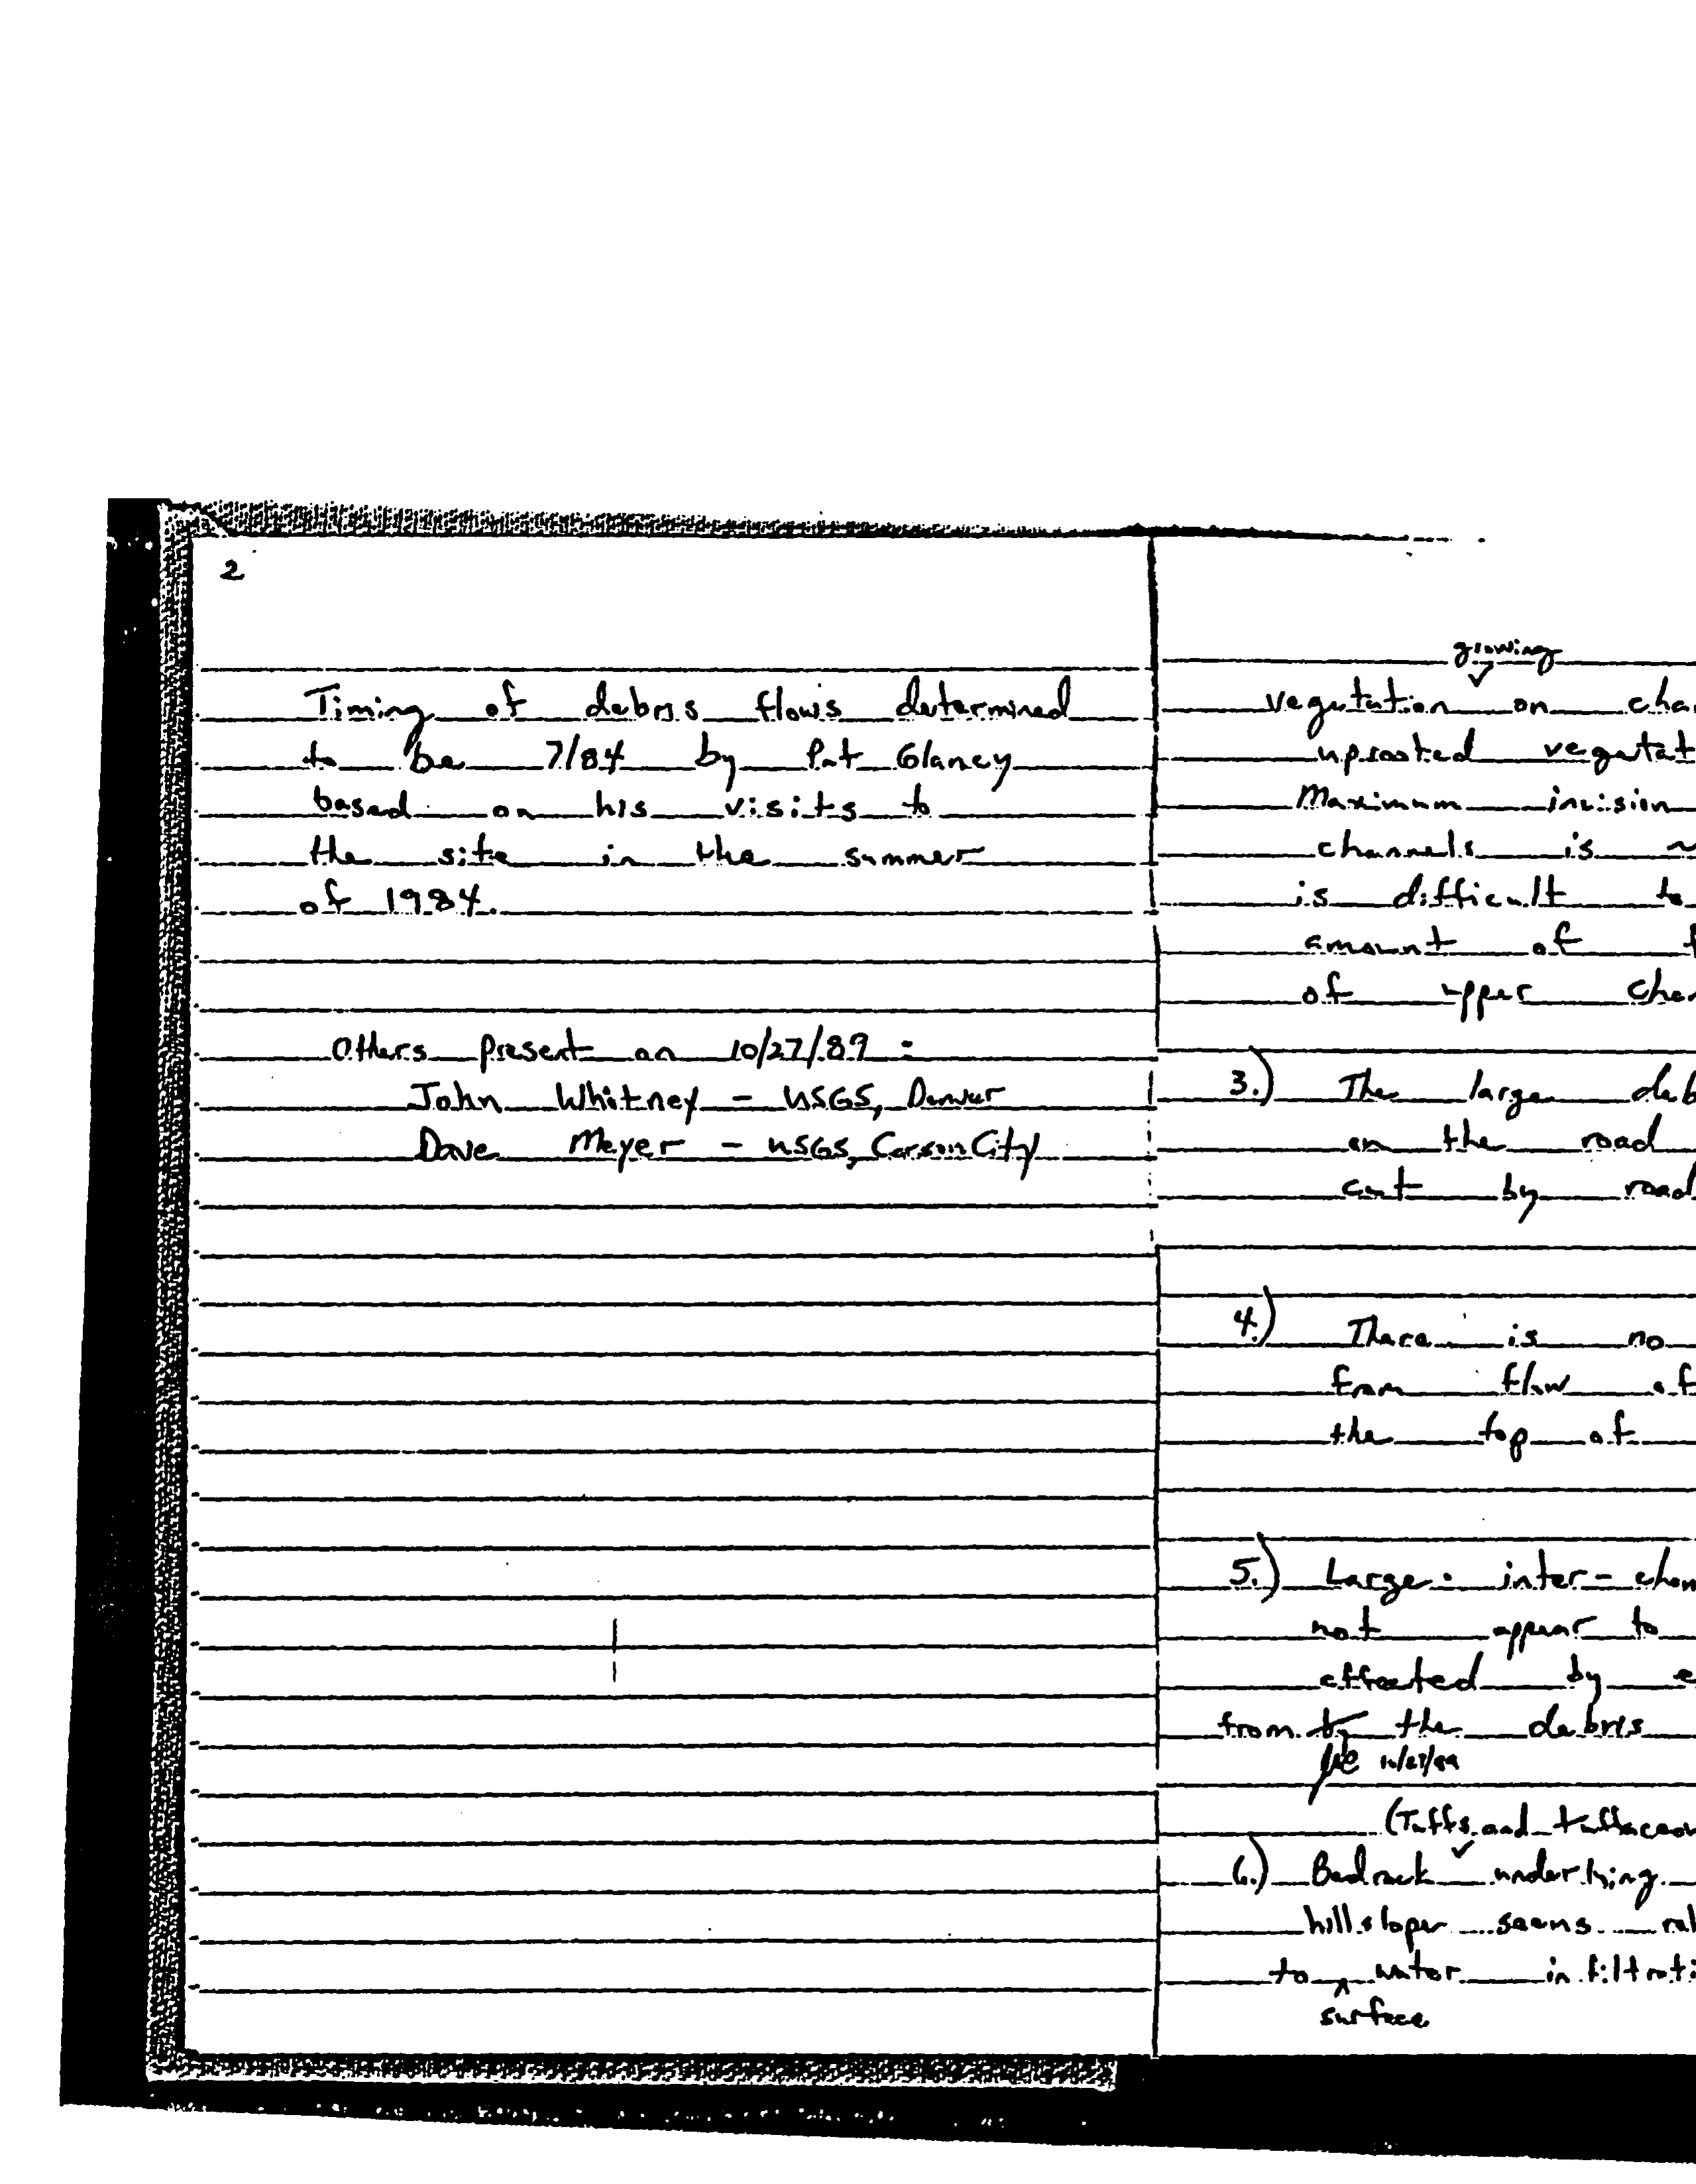 2
Timing of debris flows determined
to be 7/84 by Pat Glancy
based on his visits to
the site in the summer
of 1984.
Others present on 10/27/89 :
John Whitney - USGS, Denver
Dave Meyer - USGS, Carson City
growing
vegetation on cha
uprooted vegetat
Maximum incision
channels is ~
is difficult to
amount of f
of upper chan
3.) The large deb
on the road
cut by road
4.) There is no
from flow of
the top of
5.) Large inter-chan
not appear to
effected by e
from by the debris
10/27/89
(Tuffs and tuffaceou
6.) Bedrock underlying
hillslope seems rel
to water infiltrati
surface